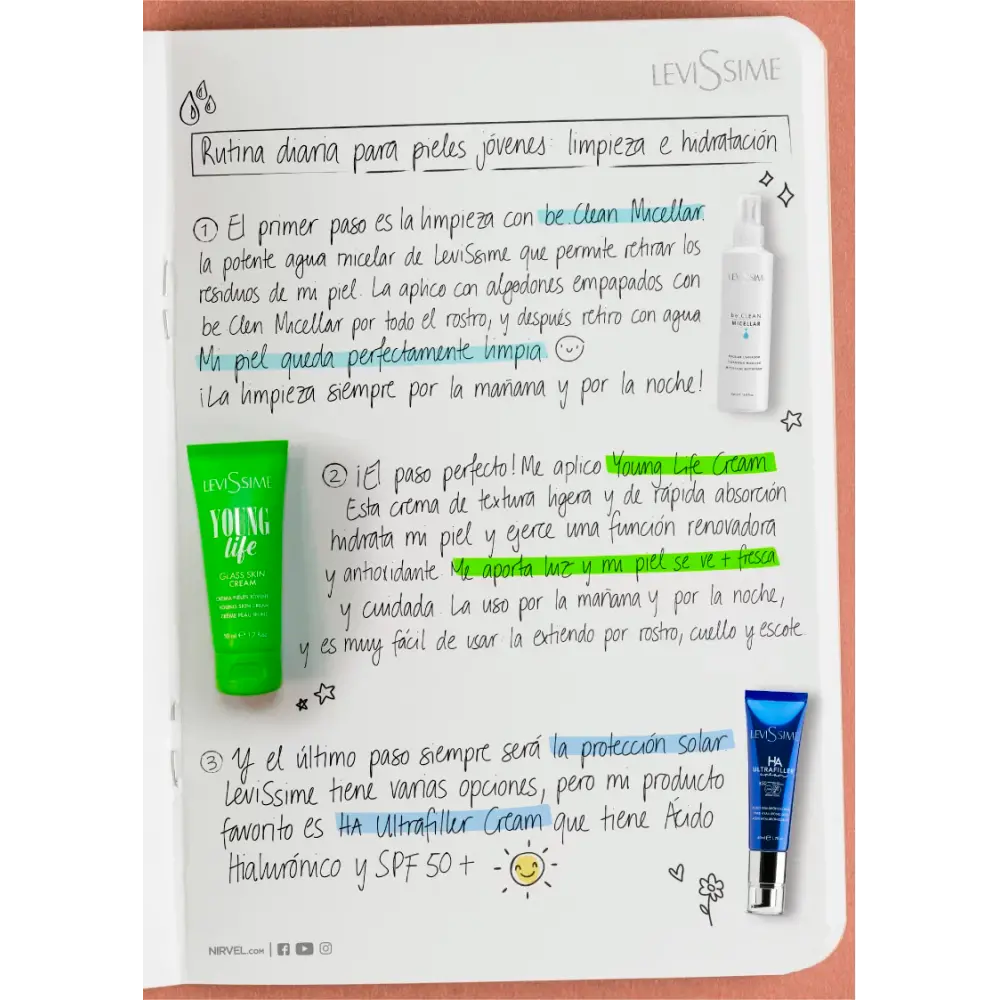 LEVISSIME
Rutina diaria para pieles jóvenes: limpieza e hidratación
1 El primer paso es la limpieza con be Clean Micellar.
la potente agua micelar de LeviSsime que permite retirar los
residuos de mi piel. La aplico con algodones empapados con
be Clen Micellar por todo el rostro, y después retiro con agua
Mi piel queda perfectamente limpia
¡La limpieza siempre por la mañana y por la noche!
LEVISSIME
be CLEAN
MICELLAR
2 ¡El paso perfecto! Me aplico Young Life Cream
Esta crema de textura ligera y de rápida absorción
hidrata mi piel y ejerce una función renovadora
y antioxidante. Me aporta luz y mi piel se ve + fresca
y cuidada. La uso por la mañana y por la noche,
y es muy fácil de usar la extiendo por rostro, cuello y escote
LEVISSIME
YOUNG
life
GLASS SKIN
CREAM
3 Y el último paso siempre será la protección solar
LeviSsime tiene varias opciones, pero mi producto
favorito es HA Ultrafiller Cream que tiene Ácido
Hialurónico y SPF 50 +
LEVISSIME
HA
ULTRAFILLER
NIRVEL.COM